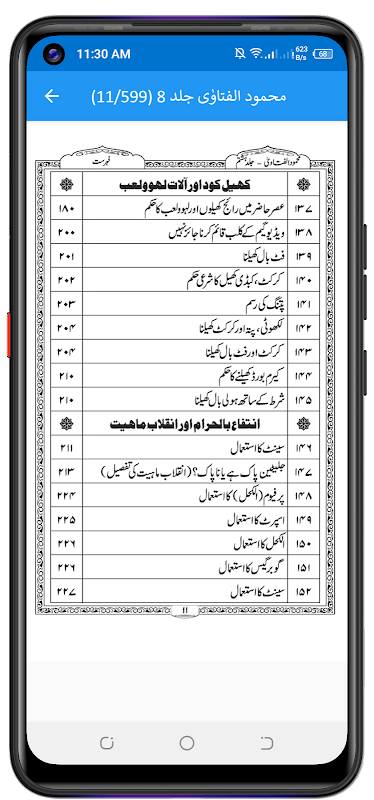 11:30 AM 623 B/s 68
محمود الفتاوٰی جلد 8 (11/599)
محمود الفتاویٰ - جلد ہشتم فہرست
کھیل کود اور آلات لھو ولعب
۱۳۷ عصر حاضر میں رائج کھیلوں اور لہو ولعب کا حکم ۱۸۰
۱۳۸ ویڈیو گیم کے کلب قائم کرنا جائز نہیں ۲۰۰
۱۳۹ فٹ بال کھیلنا ۲۰۱
۱۴۰ کرکٹ، کبڈی کھیل کا شرعی حکم ۲۰۲
۱۴۱ پتنگ کی رسم ۲۰۳
۱۴۲ لکھوٹی، پتہ اور کرکٹ کھیلنا ۲۰۴
۱۴۳ کرکٹ اور فٹ بال کھیلنا ۲۰۴
۱۴۴ کیرم بورڈ کھیلنے کا حکم ۲۱۰
۱۴۵ شرط کے ساتھ ہولی بال کھیلنا ۲۱۰
انتفاع بالحرام اور انقلاب ماهیت
۱۴۶ سینٹ کا استعمال ۲۱۱
۱۴۷ جلیٹین پاک ہے یا ناپاک؟ (انقلاب ماہیت کی تفصیل) ۲۱۳
۱۴۸ پرفیوم (الکحل) کا استعمال ۲۲۴
۱۴۹ اسپرٹ کا استعمال ۲۲۵
۱۵۰ الکحل کا استعمال ۲۲۶
۱۵۱ گوبر گیس کا استعمال ۲۲۶
۱۵۲ سینٹ کا استعمال ۲۲۷
۱۱